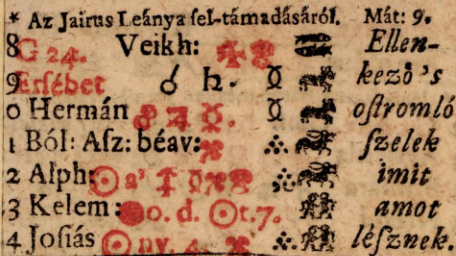 * Az Jairus Leánya fel-támadásáról. Mát: 9.
8 G 24. Veikh: Ellen-
9 Ersébet ☌ ♄. ☿ kezö 's
0 Hermán ☿. ☿ ostromló
1 Ból: Asz: béav: szelek
2 Alph: ☉ a' imit
3 Kelem: o. d. ☉ t. 7. amot
4 Josiás ☉ ny. 4. lésznek.